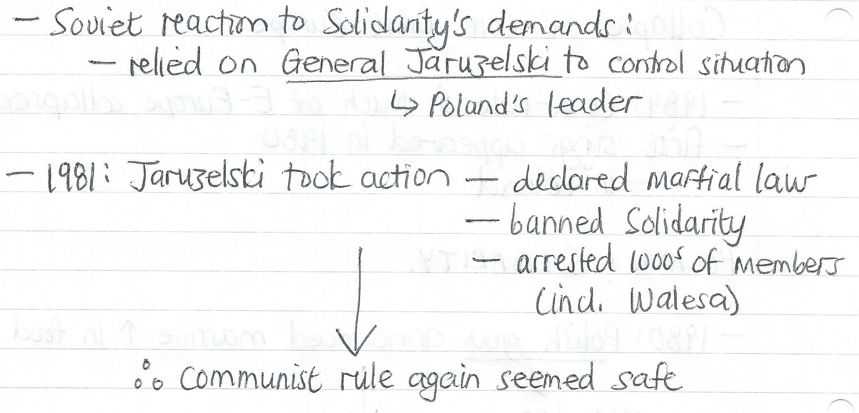 - Soviet reaction to Solidarity's demands:
- relied on General Jaruzelski to control situation
↳ Poland's leader
- 1981: Jaruzelski took action - declared martial law
- banned Solidarity
- arrested 1000s of members
(incl. Walesa)
∴ communist rule again seemed safe